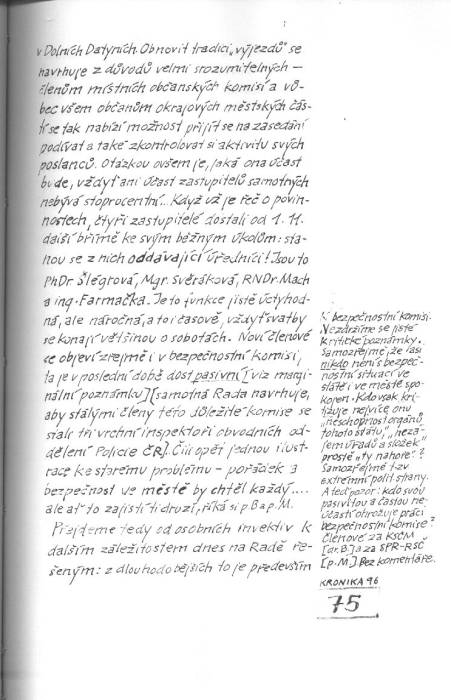 v Dolních Datyních. Obnovit tradici „výjezdů" se
navrhuje z důvodů velmi srozumitelných —
členům místních občanských komisí a vů-
bec všem občanům okrajových městských čás-
tí se tak nabízí možnost přijít se na zasedání
podívat a také zkontrolovat si aktivitu svých
poslanců. Otázkou ovšem je, jaká ona účast
bude, vždyť ani účast zastupitelů samotných
nebývá stoprocentní... Když už je řeč o povin-
nostech, čtyři zastupitelé dostali od 1. 11.
další břímě ke svým běžným úkolům: sta-
nou se z nich oddávající úředníci! Jsou to
PhDr Šlégrová, Mgr. Svěráková, RNDr. Mach
a ing. Farmačka. Je to funkce jistě úctyhod-
ná, ale náročná, a to i časově, vždyť svatby
se konají většinou o sobotách. Noví členové
se objeví zřejmě i v bezpečnostní komisi,
ta je v poslední době dost pasivní [viz margi-
nální poznámku] [samotná Rada navrhuje,
aby stálými členy této důležité komise se
stali tři vrchní inspektoři obvodních od-
dělení Policie ČR]. Čili opět jednou ilust-
race ke starému problému – pořádek a
bezpečnost ve městě by chtěl každý....
ale ať to zajistí ti druzí, říká si p. B a p. M.
Přejděme tedy od osobních invektiv k
dalším záležitostem dnes na Radě ře-
šeným: z dlouhodobějších to je především
K bezpečnostní komisi.
Nezdržíme se jisté
kritické poznámky.
Samozřejmě, že asi
nikdo není s bezpeč-
nostní situací ve
státě i ve městě spo-
kojen. Kdo však kri-
tizuje nejvíce onu
„neschopnost orgánů
tohoto státu", „nezá-
jem úřadů a složek"
prostě „ty nahoře"?
Samozřejmě tzv.
extrémní polit. strany.
A teď pozor: kdo svou
pasivitou a častou ne-
účastí ohrožuje práci
bezpečnostní komise?
Členové za KSČM
[dr. B.] a za SPR-RSČ
[p. M.]. Bez komentáře.
KRONIKA 96
75